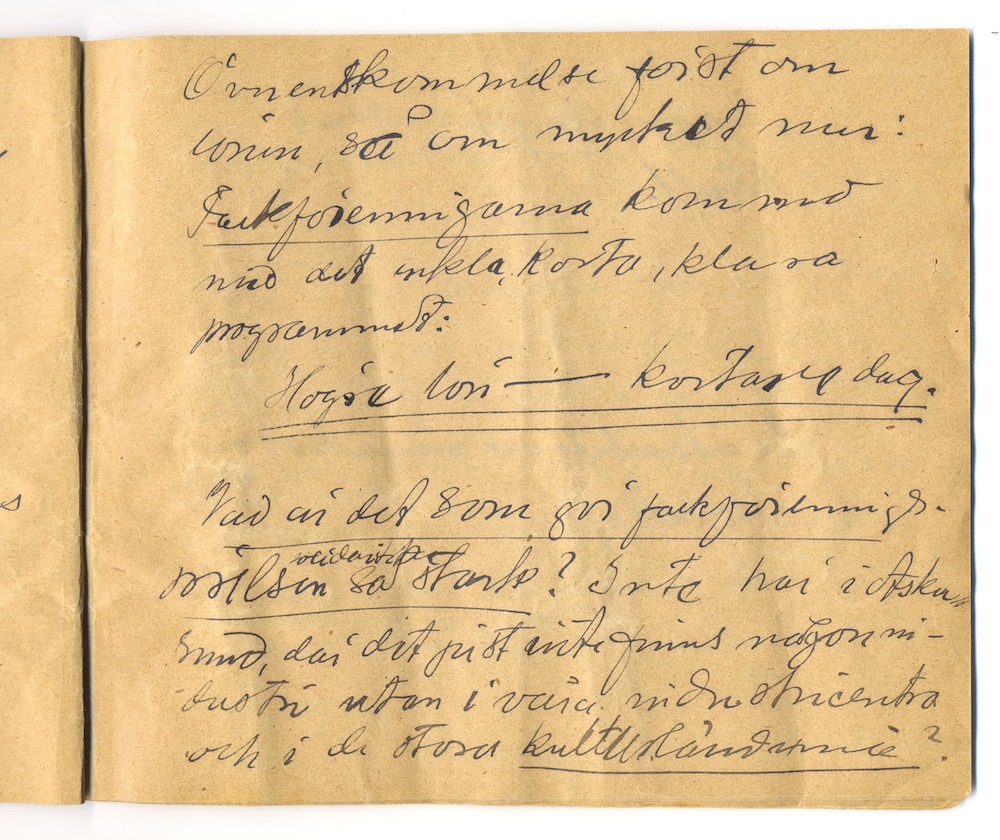 Överenskommelse först om
lönen, så om mycket mer:
Fackföreningarna kom med
med det enkla, korta, klara
programmet:
Högre lön — kortare dag.
Vad är det som gör fackförenings-
rörelsen så stark? Inte här i
sund, där det just inte finns någon in-
dustri utan i våra industricentra
och i de stora kulturländerna?